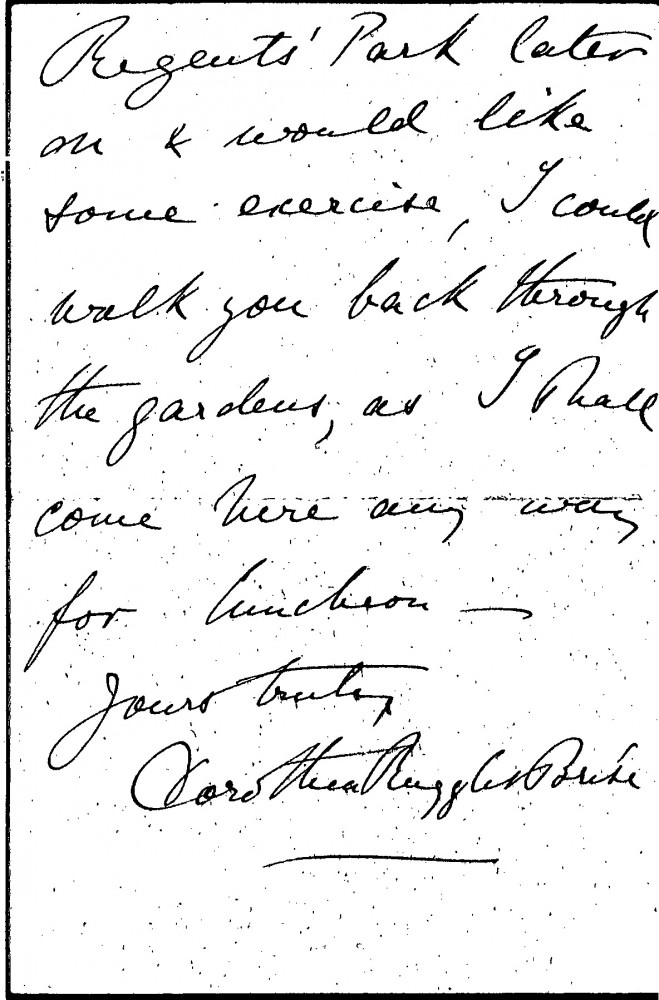 Regents' Park later
on & would like
some exercise, I could
walk you back through
the gardens, as I shall
come here any way
for luncheon —
Yours truly,
Dorothea Ruggles Brise